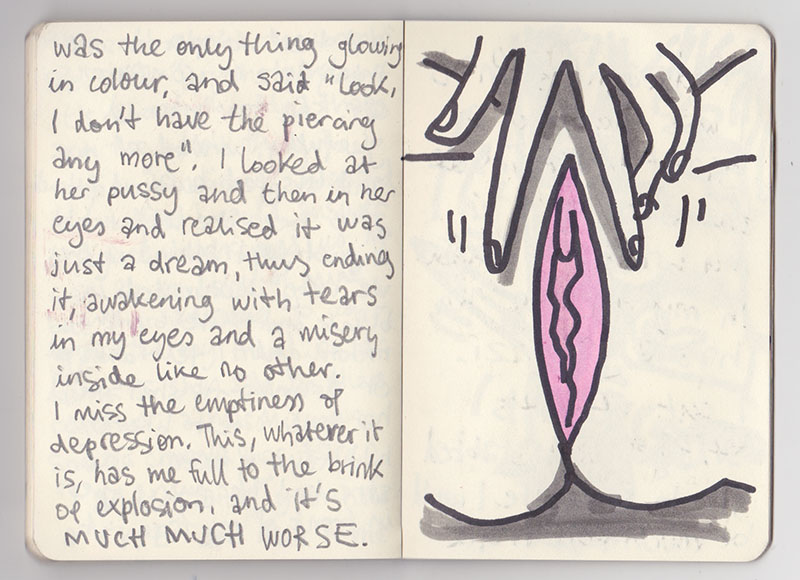 was the only thing glowing
in colour, and said "Look,
I don't have the piercing
any more". I looked at
her pussy and then in her
eyes and realised it was
just a dream, thus ending
it, awakening with tears
in my eyes and a misery
inside like no other.
I miss the emptiness of
depression. This, whatever it
is, has me full to the brink
of explosion. and it's
MUCH MUCH WORSE.